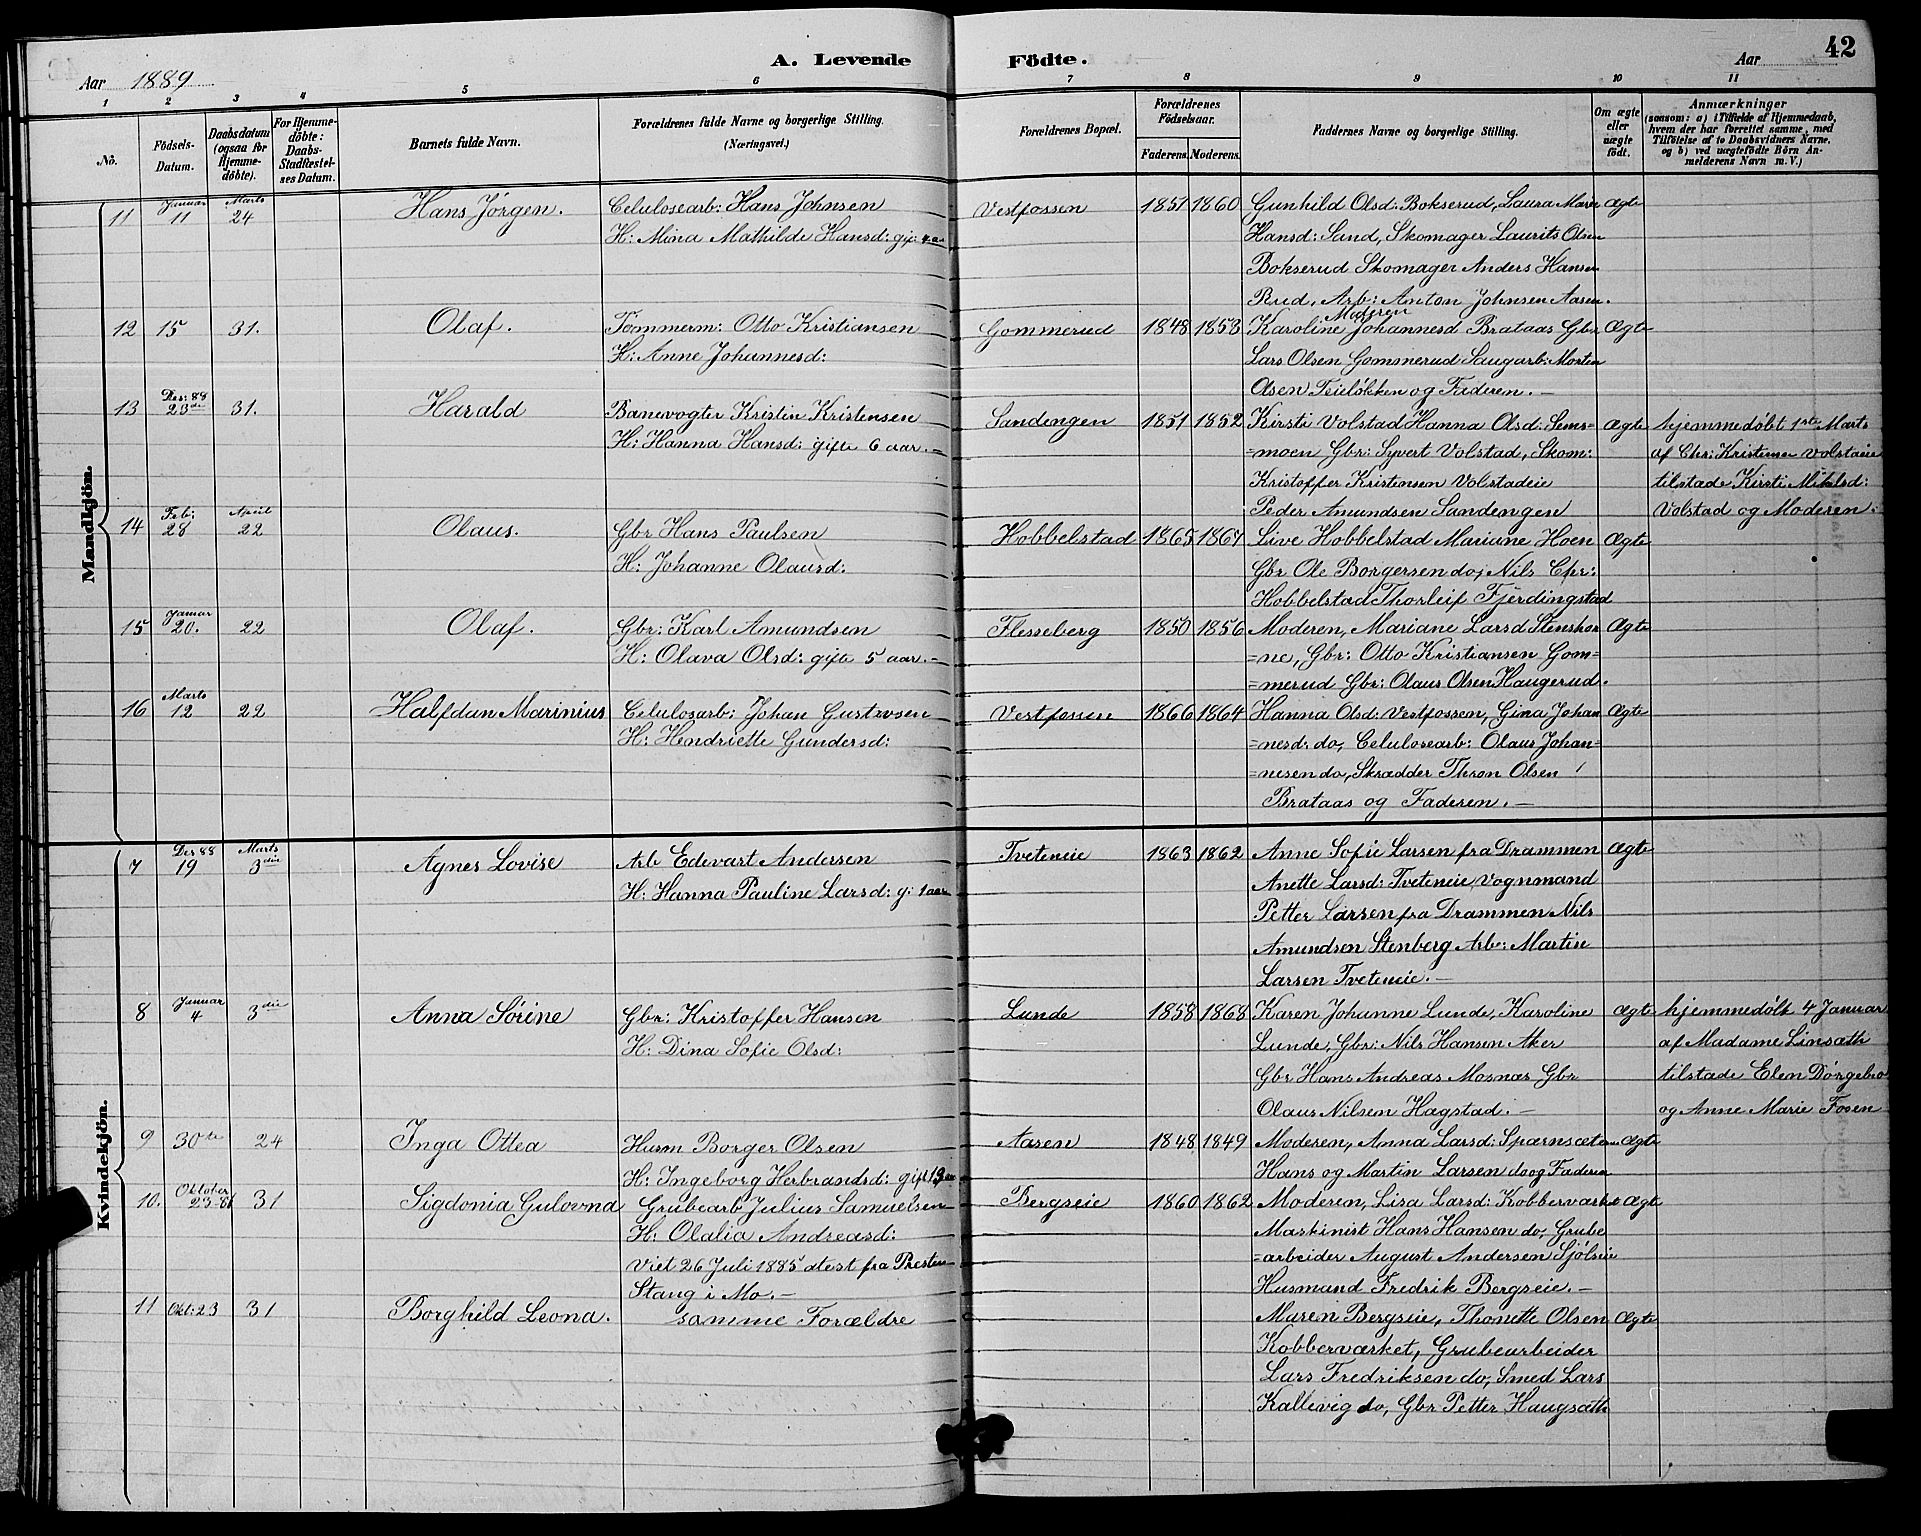 Aar 1889
A. Levende Födte.
Aar
42
1 2 3 4 5 6 7 8 9 10 11
No.
Födsels-Datum.
Daabsdatum (ogsaa for Hjemmedöbte).
For Hjemmedöbte: Daabs-Stadfestelses Datum.
Barnets fulde Navn.
Forældrenes fulde Navne og borgerlige Stilling. (Næringsvei.)
Forældrenes Bopæl.
Forældrenes Födselsaar.
Faderens. Moderens.
Faddernes Navne og borgerlige Stilling.
Om ægte eller uægte födt.
Anmærkninger
(saasom: a) i Tilfælde af Hjemmedaab, hvem der har forrettet samme, med Tilföielse af to Daabsvidners Navne, og b) ved uægtefödte Börn Anmelderens Navn m. V.)
Mandkjön.
11 Januar 11 Marts 24 Hans Jørgen. Celulosearb: Hans Johnsen Vestfossen 1851 1860 Gunhild Olsd: Bokserud, Laura Maren Ægte
H: Mina Mathilde Hansd: gift 4 aar Hansd: Sand, Skomager Laurits Olsen
Bokserud Skomager Anders Hansen
Rud, Arb: Anton Johnsen Aasen.
12 15 31. Olaf. Tømmerm: Otto Kristiansen Gommerud 1848 1853 Moderen Karoline Johannesd Brataas Gbr Ægte
H: Anne Johannesd: Lars Olsen Gommerud Saugarb: Morten
Olsen Teieløkken og Faderen.
13 Des: 88 23de 31. Harald Banevogter Kristin Kristensen Sandengen 1851 1852 Kirsti Volstad Hanna Olsd: Sems- Ægte hjemmedøbt 1ste Marts
H: Hanna Hansd: gifte 6 aar. =moen Gbr: Syvert Volstad, Skom: af Chr: Kristensen Volstaeie
Kristoffer Kristensen Volstadeie tilstade Kirsti Mikkelsd:
Peder Amundsen Sandengen Volstad og Moderen.
14 Feb: 28 April 22 Olaus. Gbr Hans Paulsen Hobbelstad 1865 1867 Live Hobbelstad Mariane Hoen Ægte
H: Johanne Olausd: Gbr Ole Borgersen do, Nils Chr:
Hobbelstad Thorleif Fjerdingstad
15 Januar 20. 22 Olaf. Gbr: Karl Amundsen Flesseberg 1850 1856 Moderen, Mariane Larsd Stenshor Ægte
H: Olava Olsd: gifte 5 aar. =ne, Gbr: Otto Kristiansen Gom=
=merud Gbr: Olaus Olsen Haugerud.
16 Marts 12 22 Halfdan Marinius Celulosarb: Johan Gustavsen Vestfossen 1866 1864 Hanna Olsd: Vestfossen, Gina Johan Ægte
H: Hendriette Gundersd: =nesd: do, Celulosearb: Olaus Johan=
=nesen do, Skrædder Thron Olsen
Brataas og Faderen.
Kvindekjön.
7 Des 88 19 Marts 3die Agnes Lovise Arb Edevart Andersen Tveteneie 1863 1862 Anne Sofie Larsen fra Drammen Ægte
H: Hanna Pauline Larsd: g: 1 aar Anette Larsd: Tveteneie, Vognmand
Petter Larsen fra Drammen Nils
Amundsen Stenberg Arb: Martin
Larsen Tveteneie.
8 Januar 4 3die Anna Sørine Gbr: Kristoffer Hansen Lunde 1858 1868 Karen Johanne Lunde, Karoline Ægte hjemmedøbt 4 Januar
H: Dina Sofie Olsd: Lunde, Gbr: Nils Hansen Aker af Madame Linsæth
Gbr Hans Andreas Mosnæs Gbr tilstade Elen Dørgebro
Olaus Nilsen Hagstad. og Anne Marie Fosen
9 30te 24 Inga Ottea Husm Borger Olsen Aasen 1848 1849 Moderen, Anna Larsd: Sparnsæteren Ægte
H: Ingeborg Herbrandsd: gift 13 aar Hans og Martin Larsen do og Faderen
10. Oktober 23-88 31 Sigdonia Gulovna Grubearb Julius Samuelsen Bergseie 1860 1862 Moderen, Lisa Larsd: Kobberværket Ægte
H: Olalia Andreasd: Maskinist Hans Hansen do, Grube
Viet 26 Juli 1885 atest fra Presten =arbeider August Andersen Sjølseie
Stang i Mo. Husmand Fredrik Bergseie.
11 Okt: 23 31 Borghild Leona. samme Forældre Maren Bergseie, Thonette Olsen Ægte
Kobberværket, Grubearbeider
Lars Fredriksen do, Smed Lars
Kallevig do, Gbr Petter Haugsæth